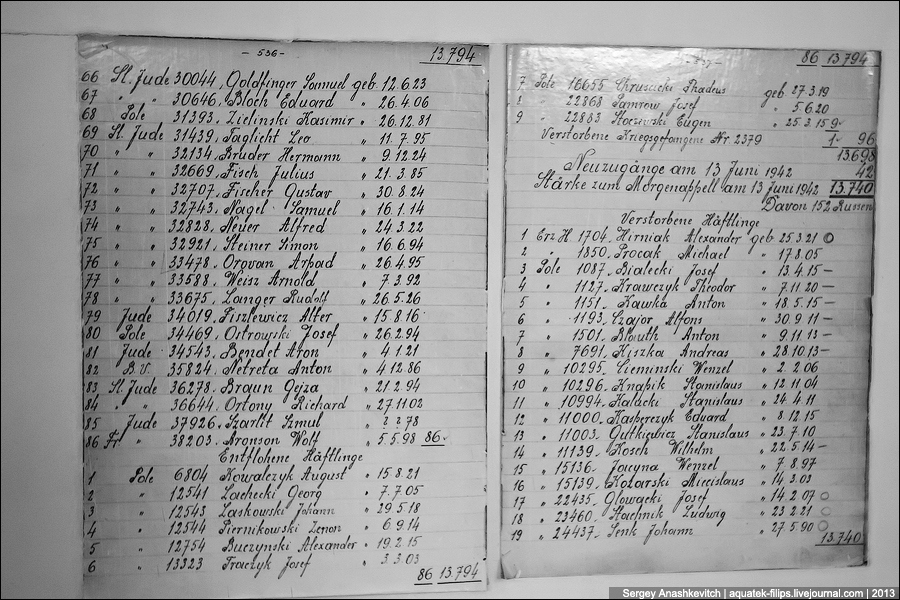 - 536 -
13.794
66 Sl. Jude 30044, Goldfinger Samuel geb. 12.6.23
67 " " 30646, Bloch Eduard " 26.4.06
68 Pole 31393, Zielinski Kasimir " 26.12.81
69 Sl. Jude 31439, Taglicht Leo " 11.7.95
70 " " 32134, Bruder Hermann " 9.12.24
71 " " 32669, Fisch Julius " 21.3.85
72 " " 32707, Fischer Gustav " 30.8.24
73 " " 32743, Nagel Samuel " 16.1.14
74 " " 32828, Neuer Alfred " 24.3.22
75 " " 32921, Steiner Simon " 16.6.94
76 " " 33478, Orovan Arpad " 26.4.95
77 " " 33588, Weisz Arnold " 7.3.92
78 " " 33675, Langer Rudolf " 26.5.26
79 Jude 34019, Fiszlewicz Alter " 15.8.16
80 Pole 34469, Ostrowski Josef " 26.2.94
81 Jude 34543, Bendet Aron " 4.1.21
82 B.V. 35824, Netreta Anton " 4.12.86
83 Sl. Jude 36278, Braun Gejza " 21.2.94
84 " " 36644, Ortony Richard " 27.11.02
85 Jude 37926, Szarlit Szmul " 2.2.78
86 Fr. " 38203, Aronson Wolf " 5.5.98 86
Entflohene Häftlinge
1 Pole 6804 Kowalczyk August " 15.8.21
2 " 12541 Zachecki Georg " 7.7.05
3 " 12543 Laskowski Johann " 29.5.18
4 " 12544 Piernikowski Zenon " 6.9.14
5 " 12754 Buczynski Alexander " 19.2.15
6 " 13323 Traczyk Josef " 3.3.03
86 13.794
- 537 -
86 13.794
7 Pole 16655 Chrusicki Thadeus geb 27.3.19
8 " 22868 Pamrow Josef " 5.6.20
9 " 22883 Stoczewski Eugen " 25.3.15 9
Verstorbene Kriegsgefangene Nr. 2379 1 96
13.698
Neuzugänge am 13 Juni 1942 42
Stärke zum Morgenappell am 13 Juni 1942 13.740
Davon 152 Russen
Verstorbene Häftlinge
1 Erz. H. 1704, Hirniak Alexander geb 25.3.21
2 " 1850, Procak Michael " 17.8.05
3 Pole 1087, Bialecki Josef " 13.4.15 -
4 " 1127, Krawczyk Theodor " 7.11.20 -
5 " 1151, Kawka Anton " 18.5.15 -
6 " 1193, Czajor Alfons " 30.9.11 -
7 " 1501, Blouth Anton " 9.11.13 -
8 " 7691, Kiszka Andreas " 28.10.13 -
9 " 10295, Cieminski Wenzel " 2.2.06
10 " 10296, Knapik Stanislaus " 12.11.04
11 " 10994, Kalacki Stanislaus " 24.4.11
12 " 11000, Kasperczyk Eduard " 8.12.15
13 " 11003, Gutkiewicz Stanislaus " 23.7.10
14 " 11139, Kosch Wilhelm " 22.5.14 -
15 " 15136, Jacyna Wenzel " 7.8.97
16 " 15139, Kotarski Miecislaus " 14.3.03
17 " 22435, Glowacki Josef " 14.2.07
18 " 23460, Stachnik Ludwig " 23.2.21
19 " 24437, Senk Johann " 27.5.90
13.740
Sergey Anashkevitch | aquatek-filips.livejournal.com | 2013